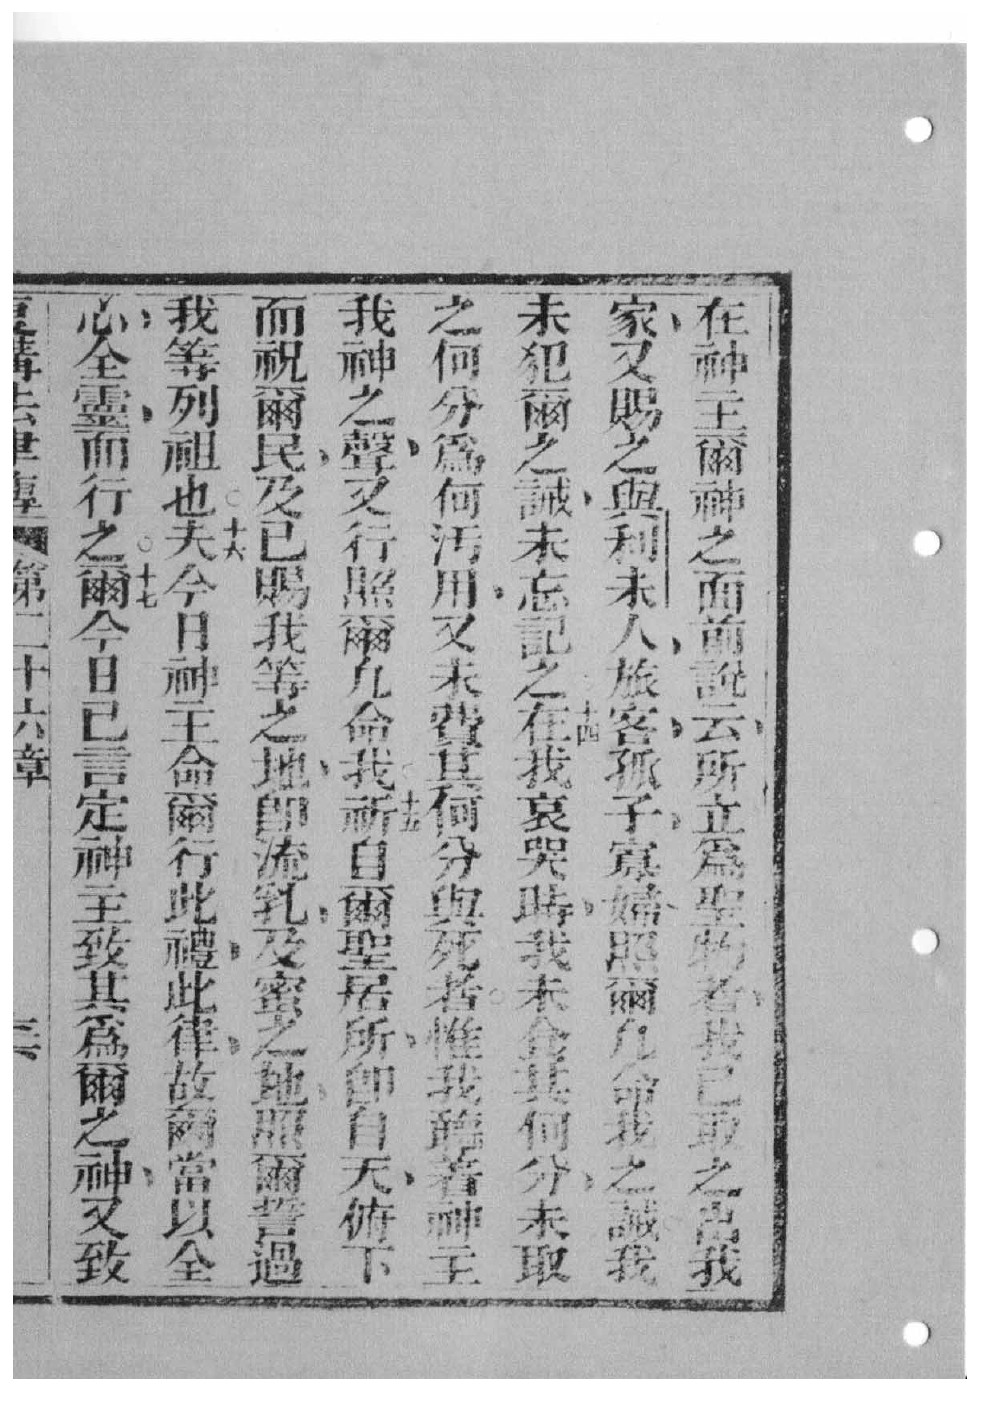 在神主爾神之面前說云所立爲聖物者我已取之出我
家又賜之與利未人旅客孤子寡婦照爾凡命我之誡我
未犯爾之誡未忘記之十四在我哀哭時我未食其何分未取
之何分爲何污用又未費其何分與死者惟我聽着神主
我神之聲又行照爾凡命我十五祈自爾聖居所卽自天俯下
而祝爾民及已賜我等之地卽流乳及蜜之地照爾誓過
我等列祖也十六夫今日神主命爾行此禮此律故爾當以全
心全靈而行之十七爾今日已言定神主致其爲爾之神又致
復講法律傳 第二十六章 三六